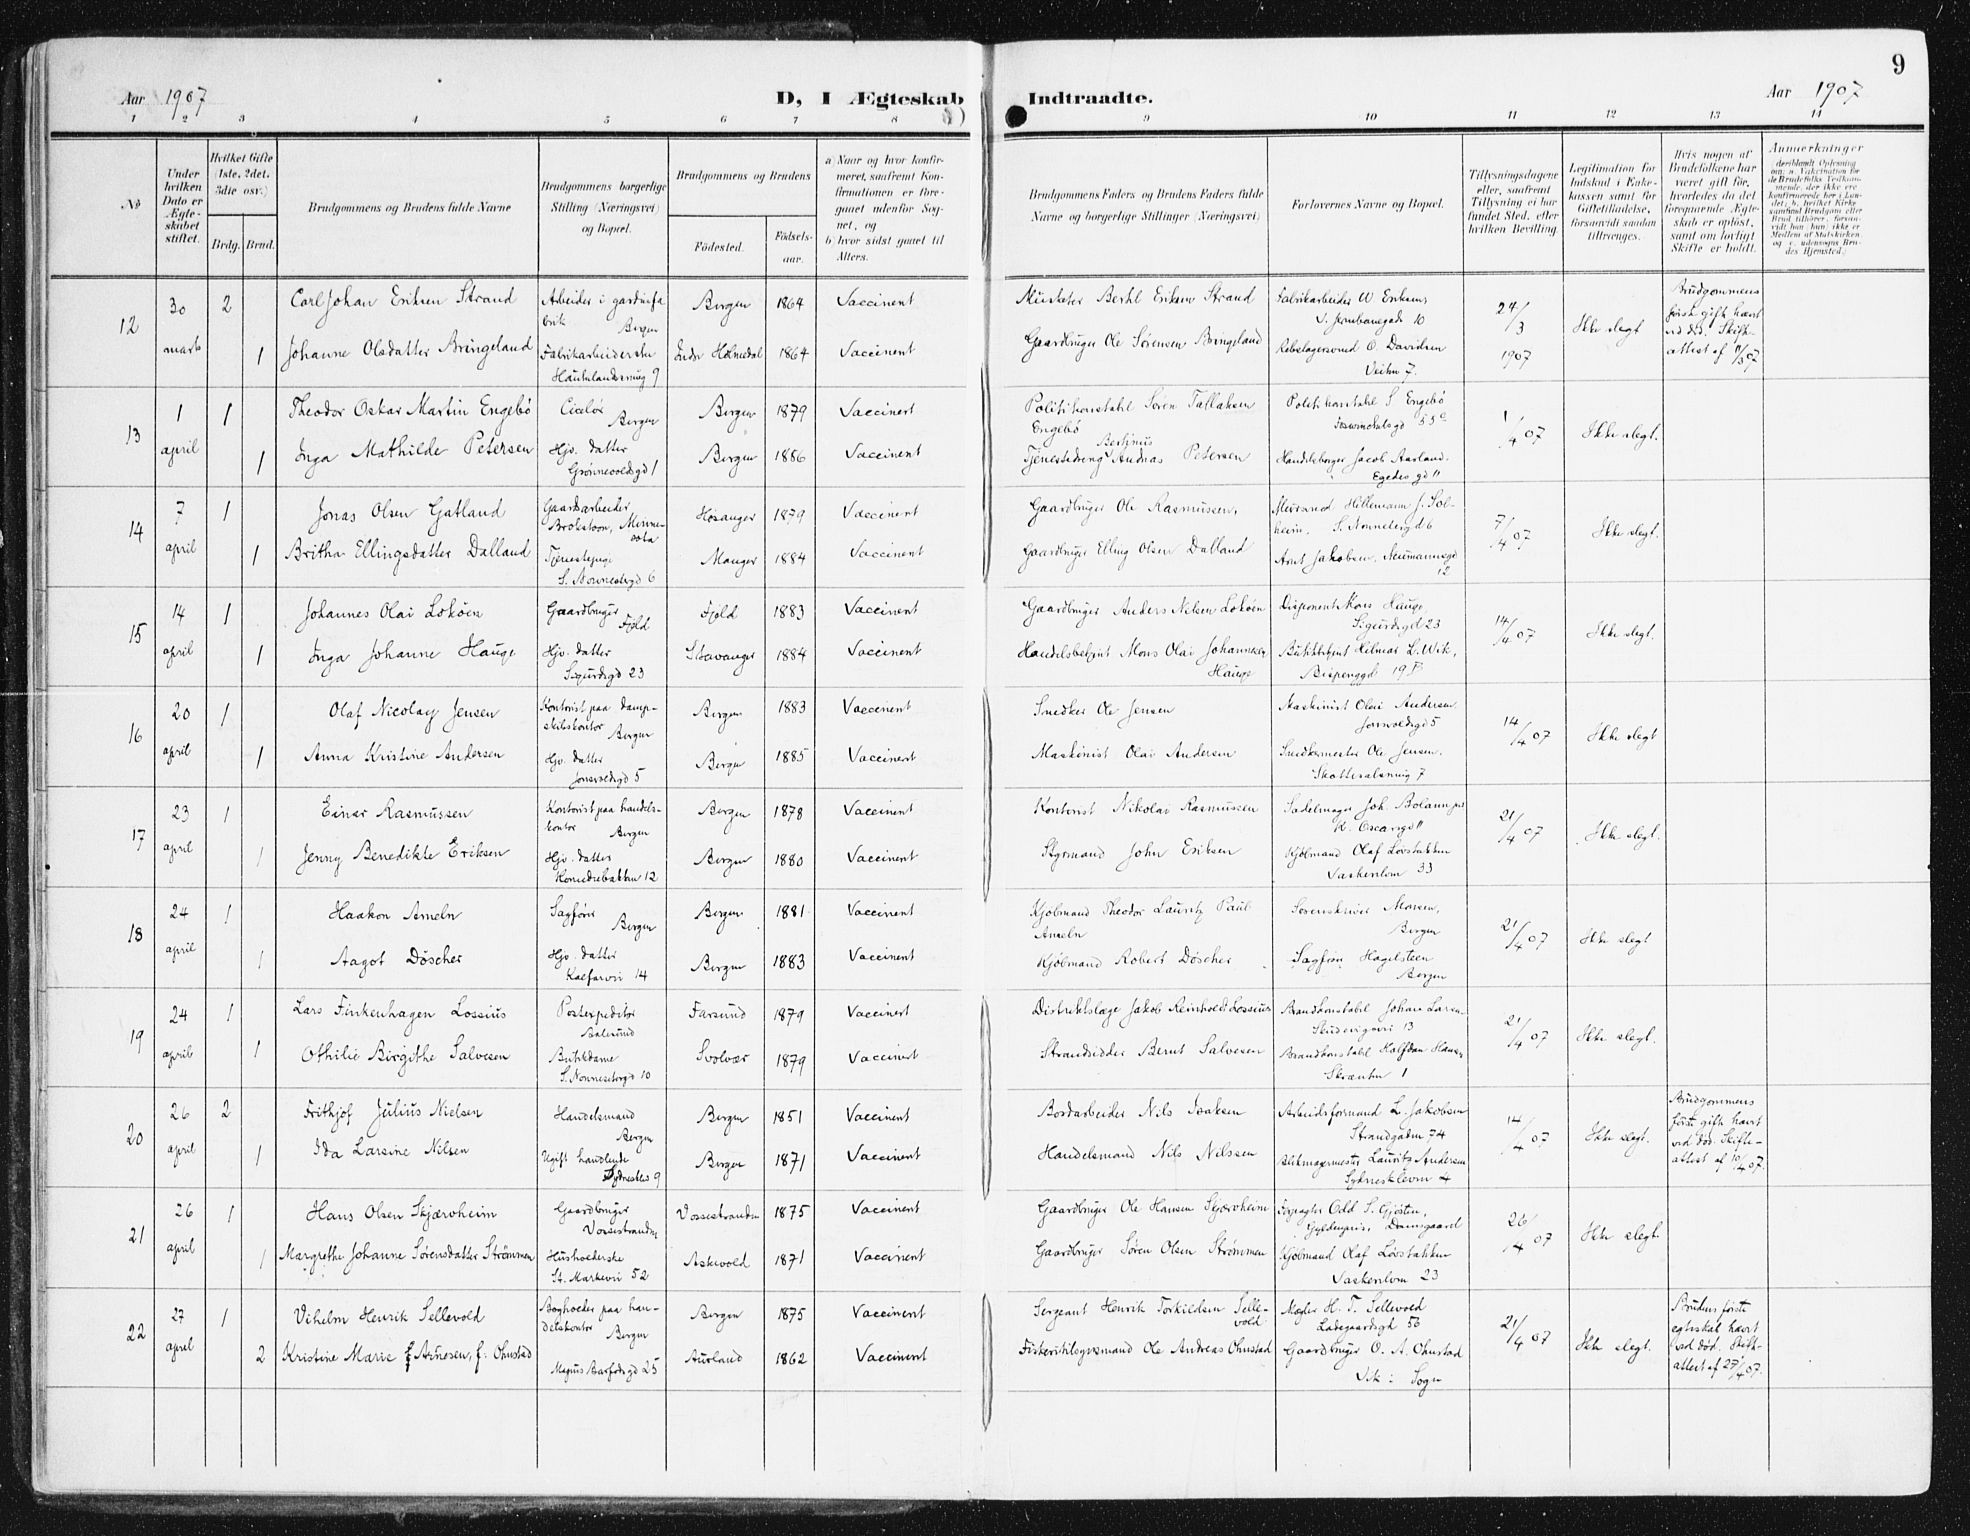 Aar 1907
D, I Ægteskab
Indtraadte.
Aar 1907
9
1 2 3 4 5 6 7 8 9 10 11 12 13 14
No
Under hvilken Dato er Ægteskabet stiftet.
Hvilket Gifte (1ste, 2det, 3die osv.)
Brdg. Brud.
Brudgommens og Brudens fulde Navne
Brudgommens borgerlige Stilling (Næringsvei) og Bopæl.
Brudgommens og Brudens
Fødested.
Fødselsaar.
a) Naar og hvor konfirmeret, saafremt Konfirmationen er foregaaet udenfor Sognet, og
b) hvor sidst gaaet til Alters.
Brudgommens Faders og Brudens Faders fulde Navne og borgerlige Stillinger (Næringsvei)
Forlovernes Navne og Bopæl.
Tillysningsdagene eller, saafremt Tillysning ei har fundet Sted, efter hvilken Bevilling.
Legitimation for Indskud i Enkekassen samt for Giftetilladelse, forsaavidt saadan tiltrænges.
Hvis nogen af Brudefolkene har været gift før, hvorledes da det foregaaende Ægteskab er opløst, samt om lovligt Skifte er holdt.
Anmærkninger
12 30 marts 2 Carl Johan Eriksen Strand Arbeider i gardinfabrik Bergen Bergen 1864 Vaccinert Musketer Berthl Eriksen Strand Fabrikarbeider W Eriksen, 10 24/3 1907 Ikke slegt Brudgommens første gift hævet ved død. Skifteattest af 11/3 07
1 Johanne Olsdatter Bringeland Fabrikarbeiderske 9 Indr Holmedal 1864 Vaccinert Gaardbruger Ole Sørensen Bringeland Rebslagersvend O. Davidsen Veiten 7.
13 1 april 1 Theodor Oskar Martin Engebø Ciselør Bergen Bergen 1879 Vaccinert Politikonstabl Søren Tallaksen Engebø Politikonstabl S Engebø 55c 1/4 07 Ikke slegt.
1 Inga Mathilde Petersen Hjv. datter Grønnevoldsgd 1 Bergen 1886 Vaccinert Tjenestedreng Bertinius Andreas Petersen Handelsborger Jacob Aarland. Egedes gd 11
14 7 april 1 Jonas Olsen Gatland Gaardsarbeider Brokstoon, Minnesota Hosanger 1879 Vaccinert Gaardbruger Ole Rasmussen, Hillemann J. Solheim. S. Nonnetergd 6 7/4 07 Ikke slegt.
1 Britha Ellingsdatter Dalland Tjenestepige S. Nonnestergd 6 Manger 1884 Vaccinert Gaardbruger Elling Olsen Dalland Arnt Jakobsen, Neumannsgd 12
15 14 april 1 Johannes Olai Lokøen Gaardbruger Fjeld Fjeld 1883 Vaccinert Gaardbruger Anders Nilsen Lokøen Disponent Mons Hauge Sigurdsgd 23 14/4 07 Ikke slegt.
1 Inga Johanne Hauge Hjv. datter Sigurdsgd 23 Stavanger 1884 Vaccinert Handelsbetjent Mons Olai Johannesen Hauge Butikbetjent Hilmar L. Wik, Bispenggd 19B
16 20 april 1 Olaf Nicolay Jensen Kontorist paa dampskibskontor Bergen Bergen 1883 Vaccinert Snedker Ole Jensen Maskinist Olai Andersen Jonsvoldsgd 5 14/4 07 Ikke slegt
1 Anna Kristine Andersen Hjv. datter Jonsvoldsgd 5 Bergen 1885 Vaccinert Maskinist Olai Andersen Snedkermester Ole Jensen. 7
17 23 april 1 Einar Rasmussen Kontorist paa handelskontor Bergen Bergen 1878 Vaccinert Kontorist Nikolai Rasmussen Sadelmager Joh. Bolann K. Oscarsgd 11 21/4 07 Ikke slegt.
1 Jenny Benedikte Eriksen Hjv. datter 12 Bergen 1880 Vaccinert Styrmand John Eriksen Kjøbmand Olaf Løvstakken Vaskerelven 33
18 24 april 1 Haakon Ameln Sagfører Bergen Bergen 1881 Vaccinert Kjøbmand Theodor Lauritz Paul Ameln Sorenskriver Bergen 21/4 07 Ikke slegt
1 Aagot Döscher Hjv. datter Kalfarvei 14 Bergen 1883 Vaccinert Kjøbmand Robert Döscher Sagfører Hagelsteen Bergen
19 24 april 1 Lars Finkenhagen Lossius Postexpeditør Aalesund Farsund 1879 Vaccinert Distriktslæge Jakob Reinholdt Lossius Brandkonstabel Johan Larsen Skuteviksveien 13 21/4 07 Ikke slegt.
1 Othilie Birgithe Salvesen Butikdame S. Nonnestergd 10 Svolvær 1879 Vaccinert Strandsidder Bernt Salvesen Brandkonstabl Halfdan Hansen Skrænten 1
20 26 april 2 Frithjof Julius Nielsen Handelsmand Bergen Bergen 1851 Vaccinert Bordarbeider Nils Isaksen Arbeidsformand L. Jakobsen Strandgaden 74 14/4 07 Ikke slegt. Brudgommens første gift hævet ved død. Skifteattest af 10/4 07.
1 Ida Larsine Nilsen Ugift handlende 9 Bergen 1871 Vaccinert Handelsmand Nils Nilssen Blikmagermester Laurits Andersen Sydneskleven 4
21 26 april 1 Hans Olsen Skjærvheim Gaardbruger Vossestranden Vossestranden 1875 Vaccinert Gaardbruger Ole Hansen Skjærvheim Forpagter Odd S. Gjøsten, Gyldenpris, Damsgaard 26/4 07 Ikke slegt.
1 Margrethe Johanne Sørensdatter Strømmen Husholderske St. Markevei 52 Askvold 1871 Vaccinert Gaardbruger Søren Olsen Strømmen Kjøbmand Olaf Løvstakken Vaskerelven 23
22 27 april 1 Vilhelm Henrik Sellevold Bogholder paa handelskontor Bergen Bergen 1875 Vaccinert Sergeant Henrik Torkildsen Sellevold Mægler H. T. Sellevold Ladegaardsgd 56 21/4 07 Ikke slegt. Brudens første egteskab hævet ved død. Skifteattest af 27/4 07.
2 Kristine Marie Arnesen, f: Ohnstad Magnus Barfodsgd 25 Aurland 1862 Vaccinert Fiskeritilsynsmand Ole Andreas Ohnstad Gaardbruger O. A. Ohnstad Vik i Sogn